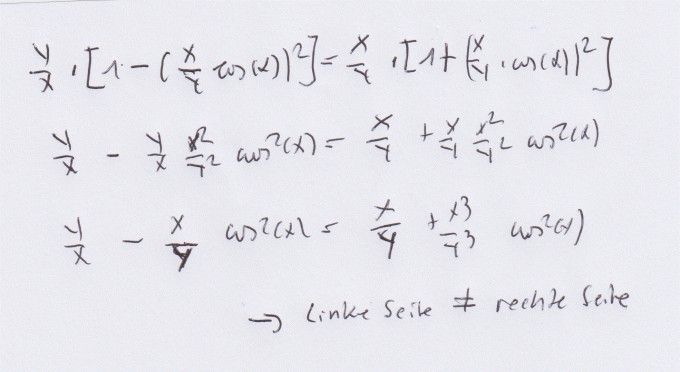 y/x · [1 - (x/y cos(α))²] = x/y · [1 + (x/y · cos(α))²]
y/x - y/x x²/y² cos²(α) = x/y + x/y x²/y² cos²(α)
y/x - x/y cos²(α) = x/y + x³/y³ cos²(α)
→ Linke Seite ≠ rechte Seite